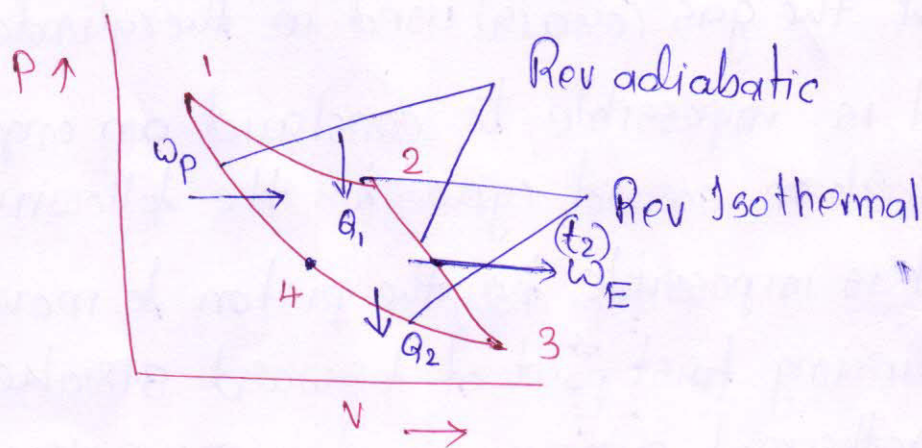 P ↑
1
Rev adiabatic
ωp
2
Q1
Rev Isothermal
(t2)
ωE
4
Q2
3
V →